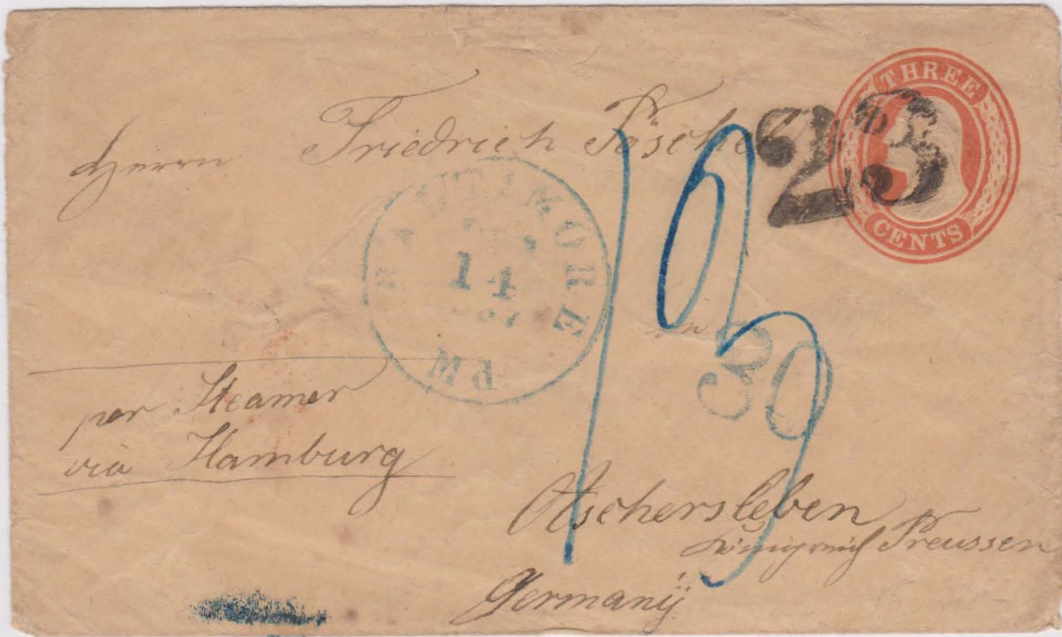 THREE
CENTS
25
Herrn Friedrich Pöschel
BALTIMORE
14
PM
30
per Steamer
via Hamburg
Aschersleben
Königreich Preussen
Germany